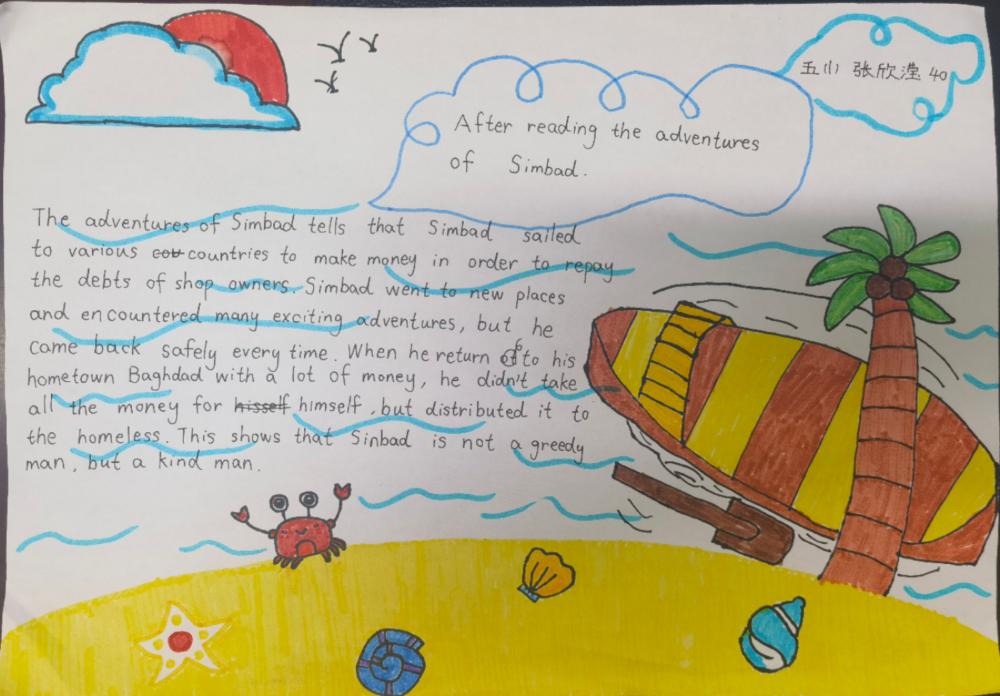 五(1) 张欣滢 40
After reading the adventures
of Simbad.
The adventures of Simbad tells that Simbad sailed
to various cou countries to make money in order to repay
the debts of shop owners. Simbad went to new places
and encountered many exciting adventures, but he
came back safely every time. When he return of to his
hometown Baghdad with a lot of money, he didn't take
all the money for hisself himself, but distributed it to
the homeless. This shows that Sinbad is not a greedy
man, but a kind man.